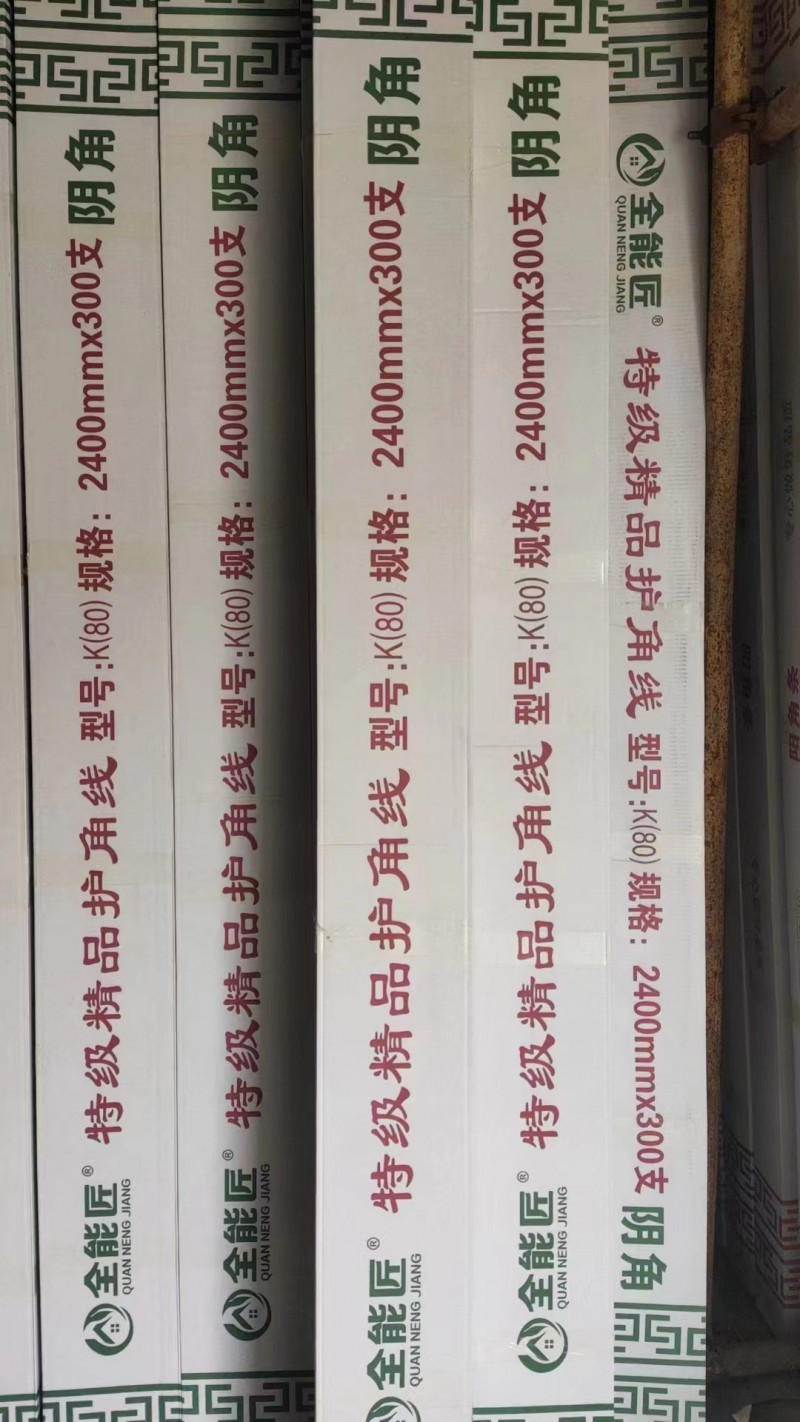 全能匠®
QUAN NENG JIANG
特级精品护角线 型号:K(80) 规格：2400mmx300支 阴角
全能匠®
QUAN NENG JIANG
特级精品护角线 型号:K(80) 规格：2400mmx300支 阴角
全能匠®
QUAN NENG JIANG
特级精品护角线 型号:K(80) 规格：2400mmx300支 阴角
全能匠®
QUAN NENG JIANG
特级精品护角线 型号:K(80) 规格：2400mmx300支 阴角
全能匠®
QUAN NENG JIANG
特级精品护角线 型号:K(80) 规格：2400mmx300支 阴角
阴角条